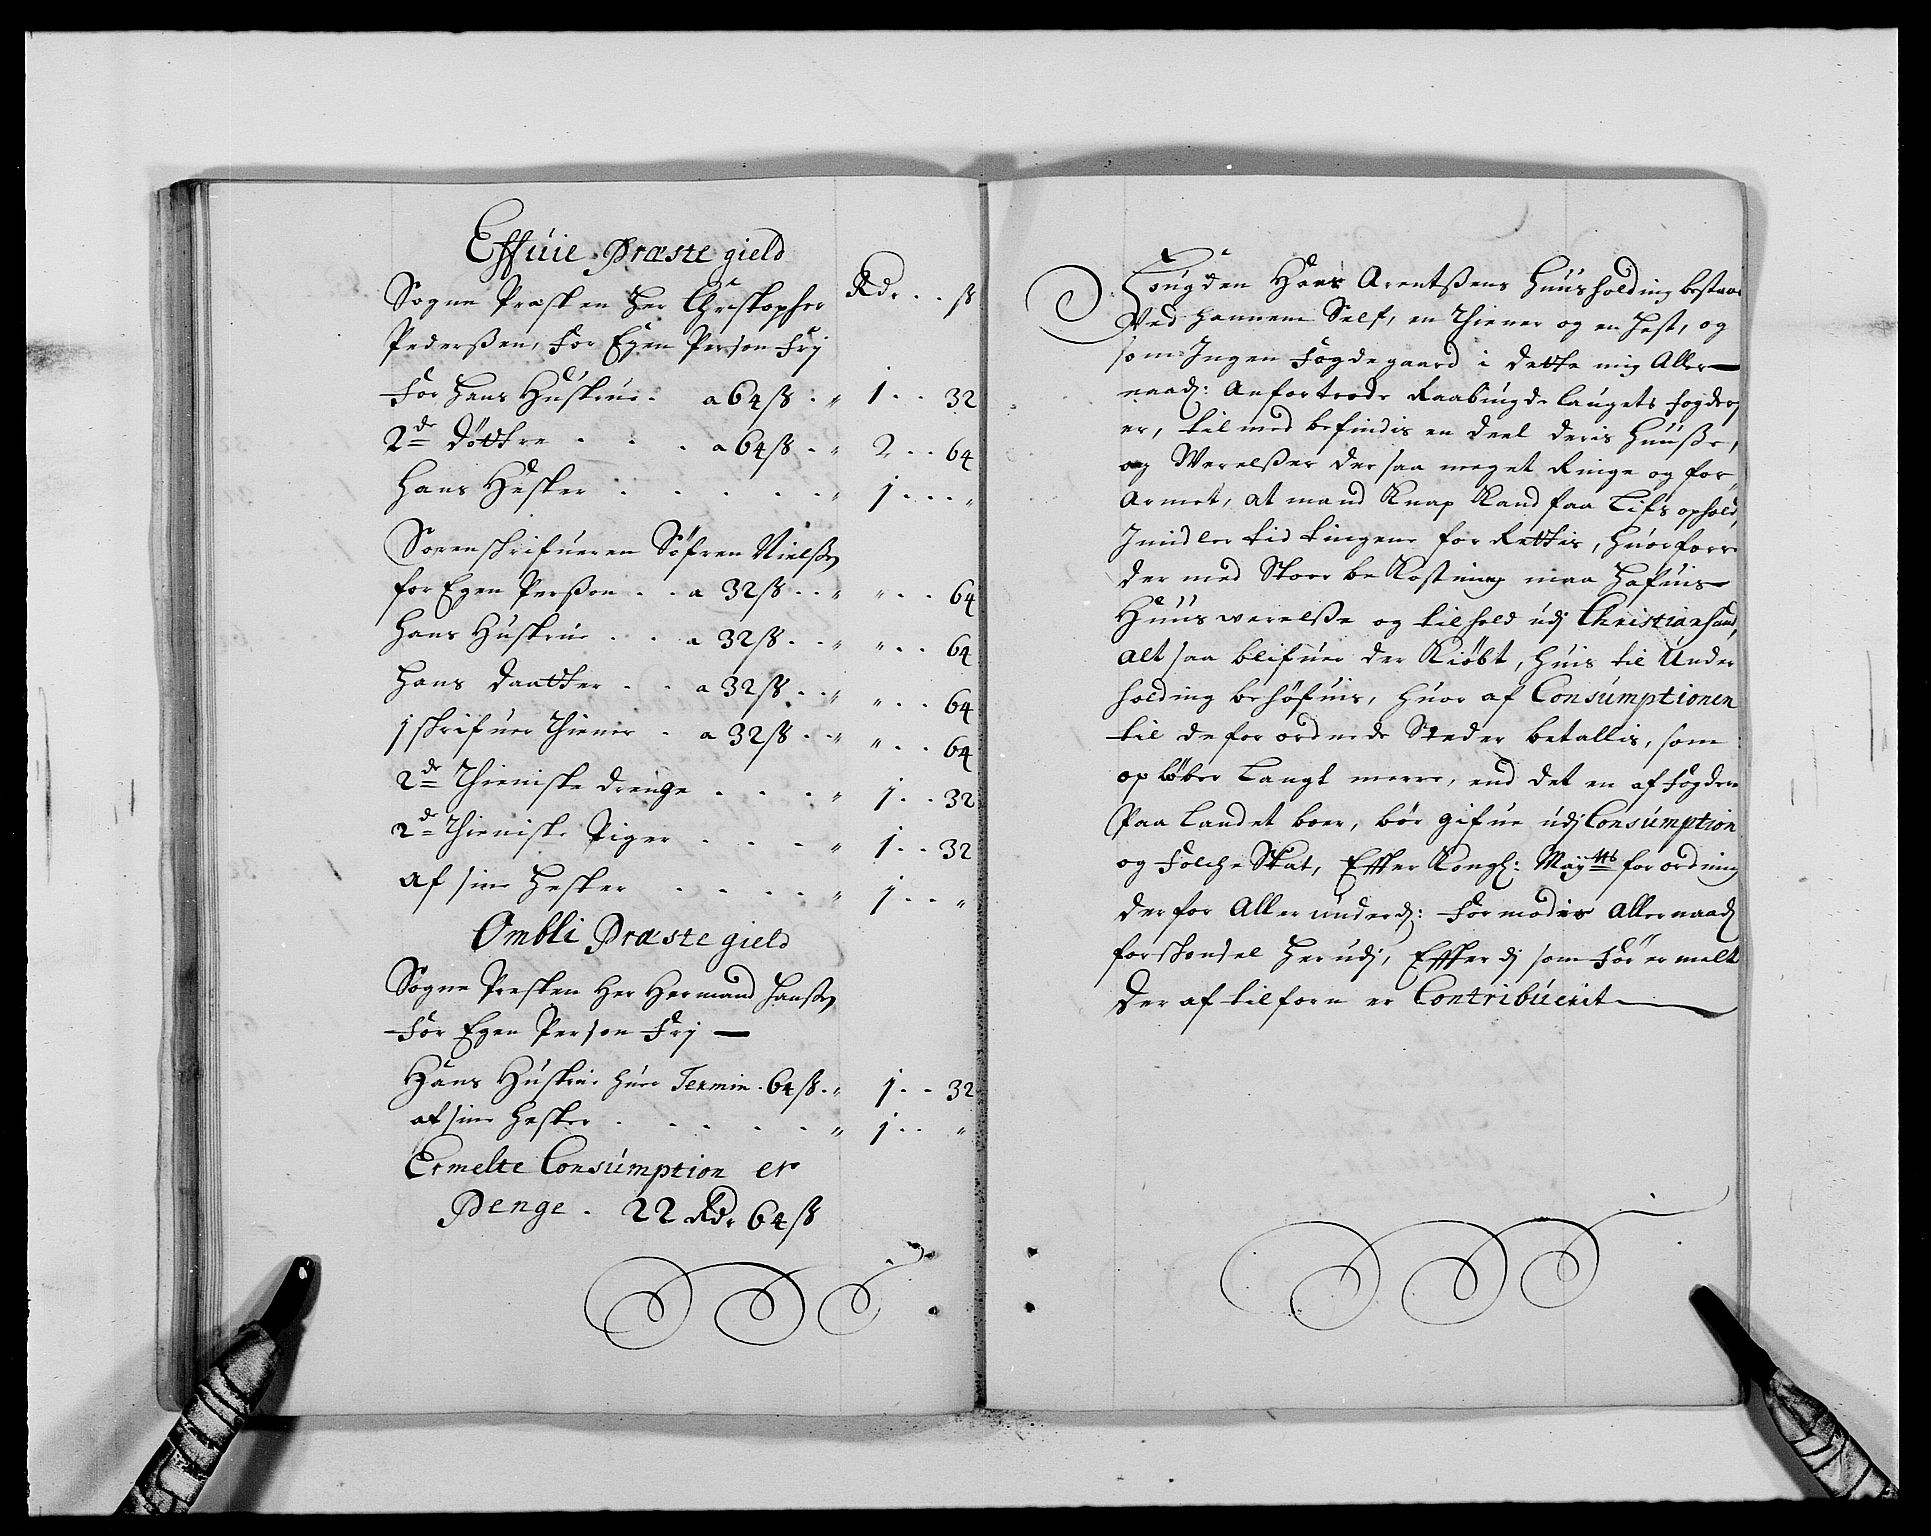 Effuie Præste gield
Sogne Præsten Her Christopher Rdr . . ß
Pederßen, For Egen Person Frj
For Hans Hustrue . a 64 ß . „ 1 . . 32
2de Döttre . . . a 64 ß . „ 2 . . 64
Hans Hester . . . . . „ 1 . . . „
Sorenskrifueren Söfren Nielßen
for Egen Perßon . . a 32 ß . . „ „ . . 64
Hans Hustrue . . . a 32 ß . . „ „ . . 64
Hans daatter . . a 32 ß . . „ „ . . 64
1 skrifuer Thiener . a 32 ß . . „ „ . . 64
2de Thieniste drenge . . . . „ 1 . . 32
2de Thieniste Piger . . . . „ 1 . . 32
af sine Hester . . . . . „ 1 . . „
Ombli Præste gield
Sogne Presten Her Hermand Hanßen
For Egen Person Frj —
Hans Hustrue huer Termin . 64 ß . „ 1 . . 32
af sine Hester . . . . . „ 1 . . „
Ermelte Consumption er
Penge . 22 Rdr 64 ß
Fougden Hans Arentßens Huusholding bestaar
Ved hannem Self, en Thiener og en Hest, og
som Ingen Fogdegaard i dette mig Aller—
naad: Anfortrode Raabÿgdelaugets fogderj
er, til med befindis en deel deris Huuße,
og Werelßer der saa meget Ringe og for,
Armet, at mand Knap Kand faa Lifs ophold,
Imidlertid tingene for Rettis, huorforre
der med Stoer beKostning maa Hafuis
Huus werelße og tilhold udj Christiansand,
alt saa blifuer der Kiöbt, huis til Under
holding behöfuis, huor af Consumptionen
til de forordnede Steder betallis, som
op löber Langt merre, end det en af Fogderne
Paa Landet boer, bör gifue udj Consumption
og Folche Skat, Effter Kongl: Maÿtts forordning
derfor Allerunderd: Formodes Allernaad
forskonsel Herudj, Effter dj som För er melt
der af tilforn er Contribuerit